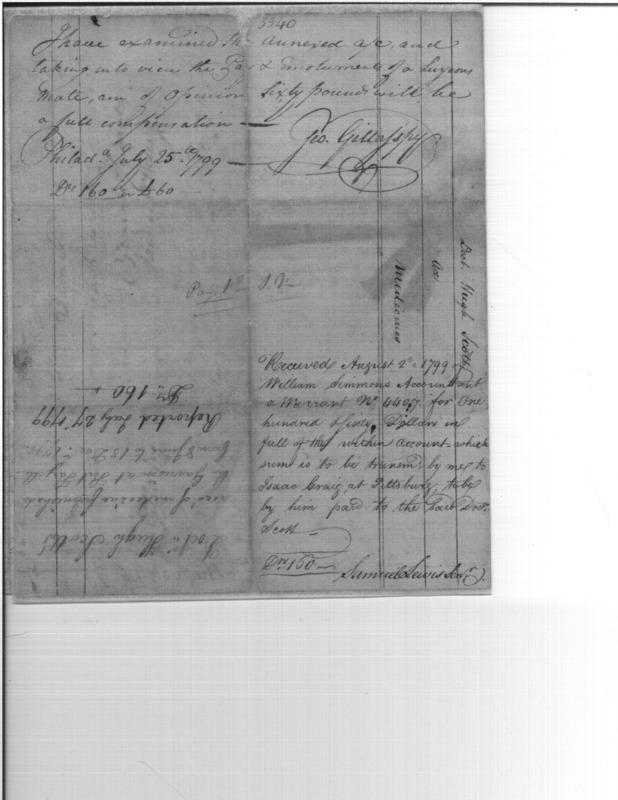 3340
I have examined the annexed a/c, and
taking into view the Pay & Emoluments of a Surgeons
Mate, am of Opinion Sixty pounds will be
a full compensation —
Geo. Gillasspy
Philada. July 25th 1799 —
Drs 160 or £60
Doct. Hugh Scott
Medicines
Received August 2d 1799 of
William Simmons Accountant
a Warrant No. 4407 for One
hundred & Sixty Dollars in
full of the within account – which
sum is to be transmd. by me to
Isaac Craig, at Pittsburg, to be
by him paid to the said Doct.
Scott —
Drs 160 —
Samuel Lewis Senr.
Doctr. Hugh Scott's
medicine furnished
the Garrison at
Reported July 27 1799
Drs. 160